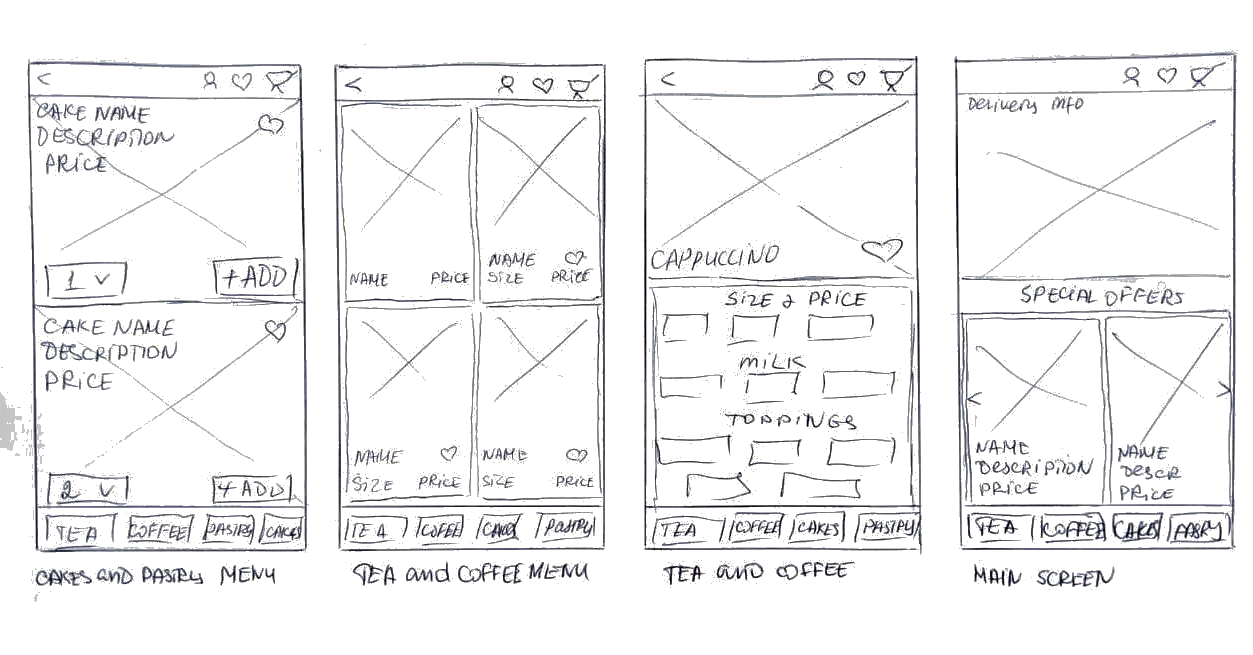 <
CAKE NAME
DESCRIPTION
PRICE
1 v
+ADD
CAKE NAME
DESCRIPTION
PRICE
2 v
+ADD
TEA COFFEE PASTRY CAKES
CAKES and PASTRY MENU
<
NAME PRICE
NAME
SIZE PRICE
NAME
SIZE PRICE
NAME
SIZE PRICE
TEA COFFEE CAKES PASTRY
TEA and COFFEE MENU
<
CAPPUCCINO
SIZE & PRICE
MILK
TOPPINGS
TEA COFFEE CAKES PASTRY
TEA and COFFEE
Delivery info
SPECIAL OFFERS
< >
NAME
DESCRIPTION
PRICE
NAME
DESCR
PRICE
TEA COFFEE CAKES PASRY
MAIN SCREEN